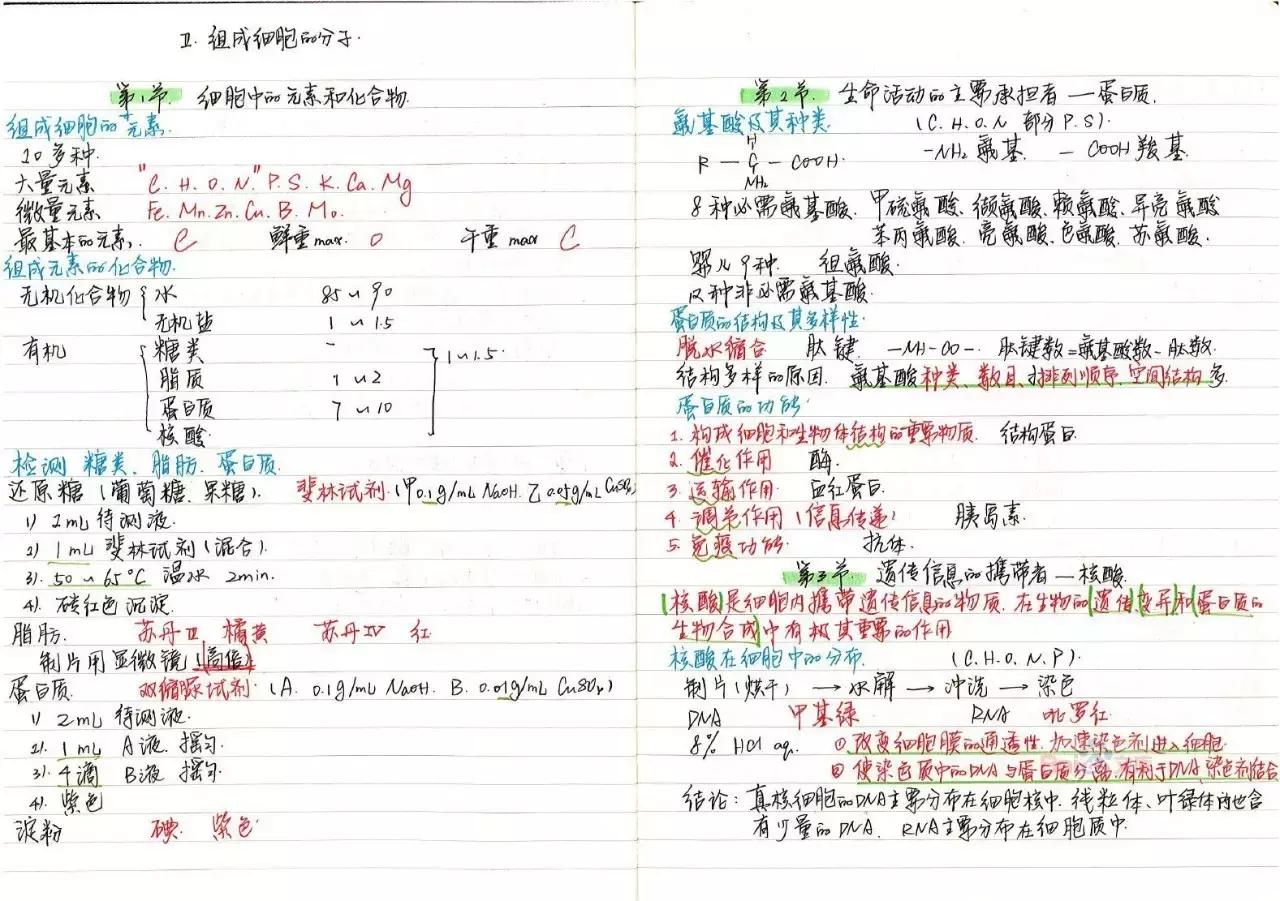 Ⅱ. 组成细胞的分子.
第1节. 细胞中的元素和化合物.
组成细胞的元素.
20多种.
大量元素 "C. H. O. N." P. S. K. Ca. Mg
微量元素 Fe. Mn. Zn. Cu. B. Mo.
最基本的元素: C 鲜重max. O 干重max C
组成元素的化合物.
无机化合物 { 水 85~90
无机盐 1~1.5
有机 { 糖类 - ] 1~1.5.
脂质 1~2
蛋白质 7~10
核酸
检测 糖类、脂肪、蛋白质.
还原糖 (葡萄糖、果糖). 斐林试剂. (甲0.1g/mL NaOH. 乙0.05g/mL CuSO₄)
1) 2mL 待测液.
2) 1mL 斐林试剂 (混合).
3). 50~65℃ 温水 2min.
4). 砖红色沉淀.
脂肪. 苏丹Ⅲ 橘黄 苏丹Ⅳ 红.
制片用显微镜 (高倍)
蛋白质. 双缩脲试剂. (A. 0.1g/mL NaOH. B. 0.01g/mL CuSO₄)
1) 2mL 待测液.
2). 1mL A液. 摇匀.
3). 4滴 B液 摇匀.
4). 紫色
淀粉 碘 紫色.
第2节. 生命活动的主要承担者 — 蛋白质.
氨基酸及其种类. (C. H. O. N 部分 P. S).
H
R — C — COOH. -NH₂ 氨基. - COOH 羧基.
NH₂
8种必需氨基酸. 甲硫氨酸、缬氨酸、赖氨酸、异亮氨酸
苯丙氨酸. 亮氨酸、色氨酸、苏氨酸.
婴儿9种. 组氨酸.
12种非必需氨基酸.
蛋白质的结构及其多样性.
脱水缩合 肽键. -NH-CO-. 肽键数=氨基酸数-肽数.
结构多样的原因. 氨基酸种类、数目、排列顺序、空间结构多.
蛋白质的功能.
1. 构成细胞和生物体结构的重要物质. 结构蛋白.
2. 催化作用 酶.
3. 运输作用. 血红蛋白.
4. 调节作用 (信息传递) 胰岛素.
5. 免疫功能. 抗体.
第3节. 遗传信息的携带者 — 核酸.
(核酸)是细胞内携带遗传信息的物质. 在生物的(遗传)(变异)和(蛋白质的
生物合成)中有极其重要的作用
核酸在细胞中的分布. (C. H. O. N. P).
制片(烘干) → 水解 → 冲洗 → 染色
DNA 甲基绿. RNA 吡罗红.
8% HCl aq. ① 改变细胞膜的通透性. 加速染色剂进入细胞.
② 使染色质中的DNA与蛋白质分离. 有利于DNA 染色剂结合
结论: 真核细胞的DNA主要分布在细胞核中. 线粒体、叶绿体内也含
有少量的DNA. RNA主要分布在细胞质中.